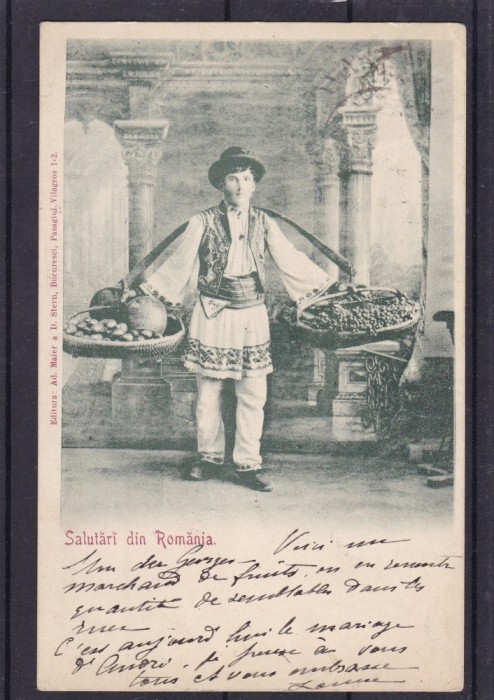 Editura: Ad. Maier & D. Stern, Bucuresci, Pasagiul Vilagrós 1-2.
Salutări din România.
Mon cher Georges Voici un
marchand de fruits, on en rencontre
quantité de semblables dans les
rues
C'est aujourd'hui le mariage
d'André. Je pense à vous
tous et vous embrasse